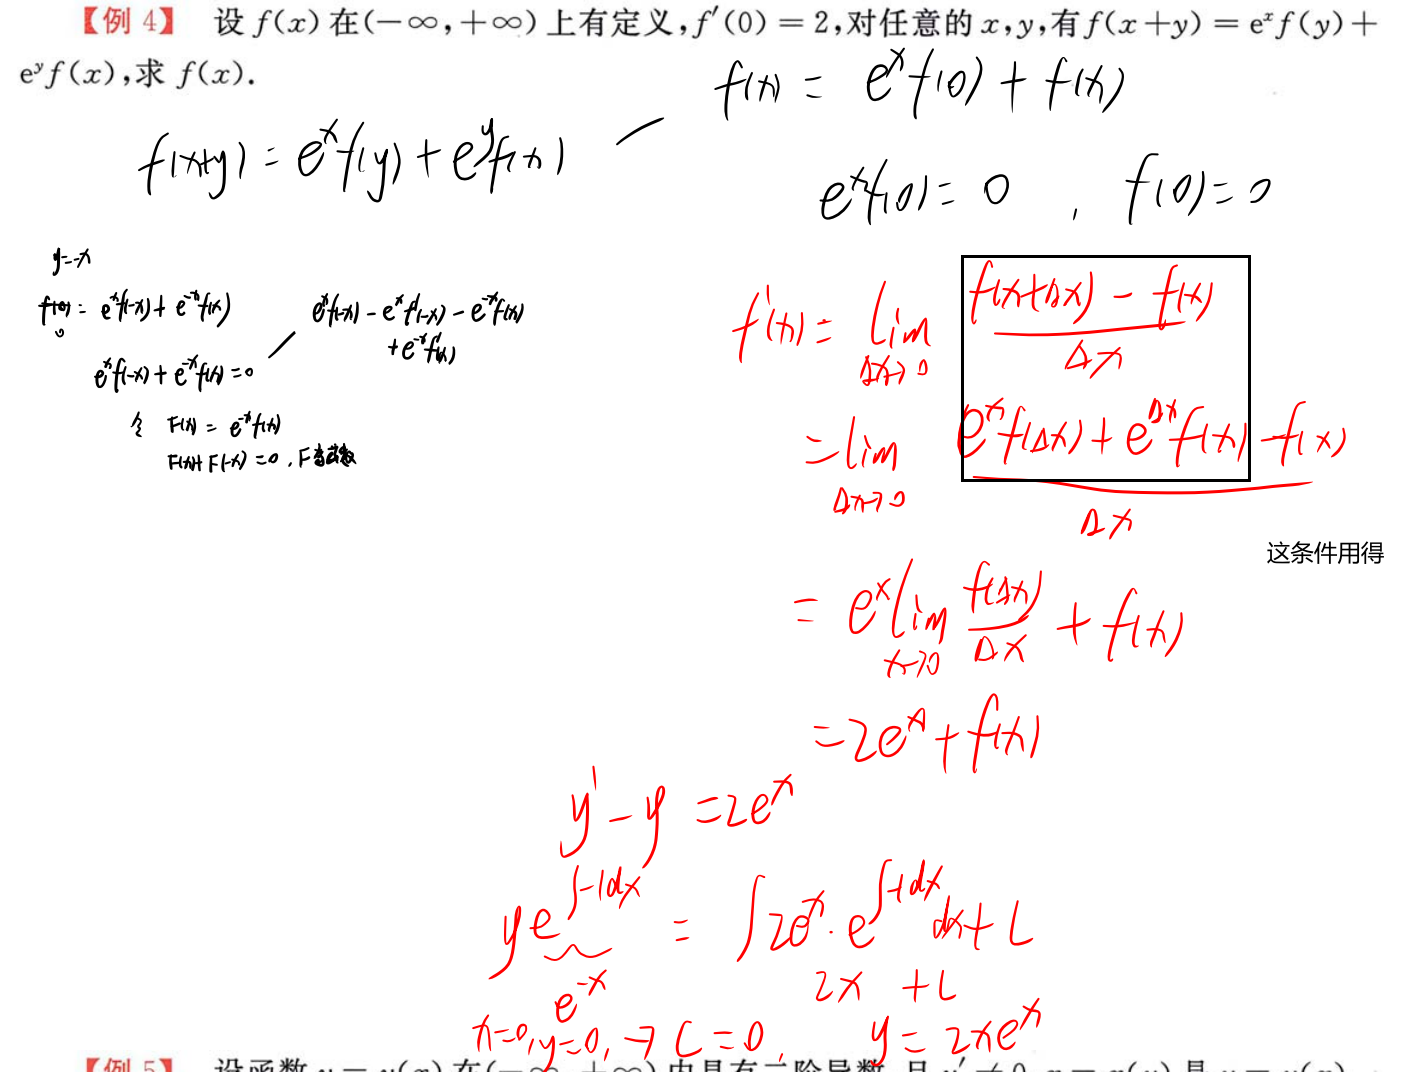 【例 4】 设 f(x) 在(−∞,+∞) 上有定义,f′(0) = 2,对任意的 x,y,有 f(x+y) = eˣf(y) +
eʸf(x),求 f(x).
f(x+y) = eˣf(y) + eʸf(x)
f(x) = eˣf(0) + f(x)
eˣf(0) = 0 , f(0) = 0
y=-x
f(0) = eˣf(-x) + e⁻ˣf(x)
0
eˣf(-x) + e⁻ˣf(x) = 0
eˣf(-x) - eˣf'(-x) - e⁻ˣf(x)
+ e⁻ˣf'(x)
令 F(x) = e⁻ˣf(x)
F(x)+F(-x) = 0 , F奇函数
f'(x) = lim Δx→0 (f(x+Δx) - f(x)) / Δx
= lim Δx→0 (eˣf(Δx) + e^Δx f(x) - f(x)) / Δx
这条件用得
= eˣ lim x→0 f(Δx)/Δx + f(x)
= 2eˣ + f(x)
y' - y = 2eˣ
y e^∫-1dx = ∫2eˣ · e^∫-1dx dx + C
e⁻ˣ 2x + C
x=0, y=0, → C=0, y = 2xeˣ
【例 5】 设函数 y = y(x) 在(−∞,+∞) 内具有二阶导数,且 y′ ≠ 0, x = x(y) 是 y = y(x)